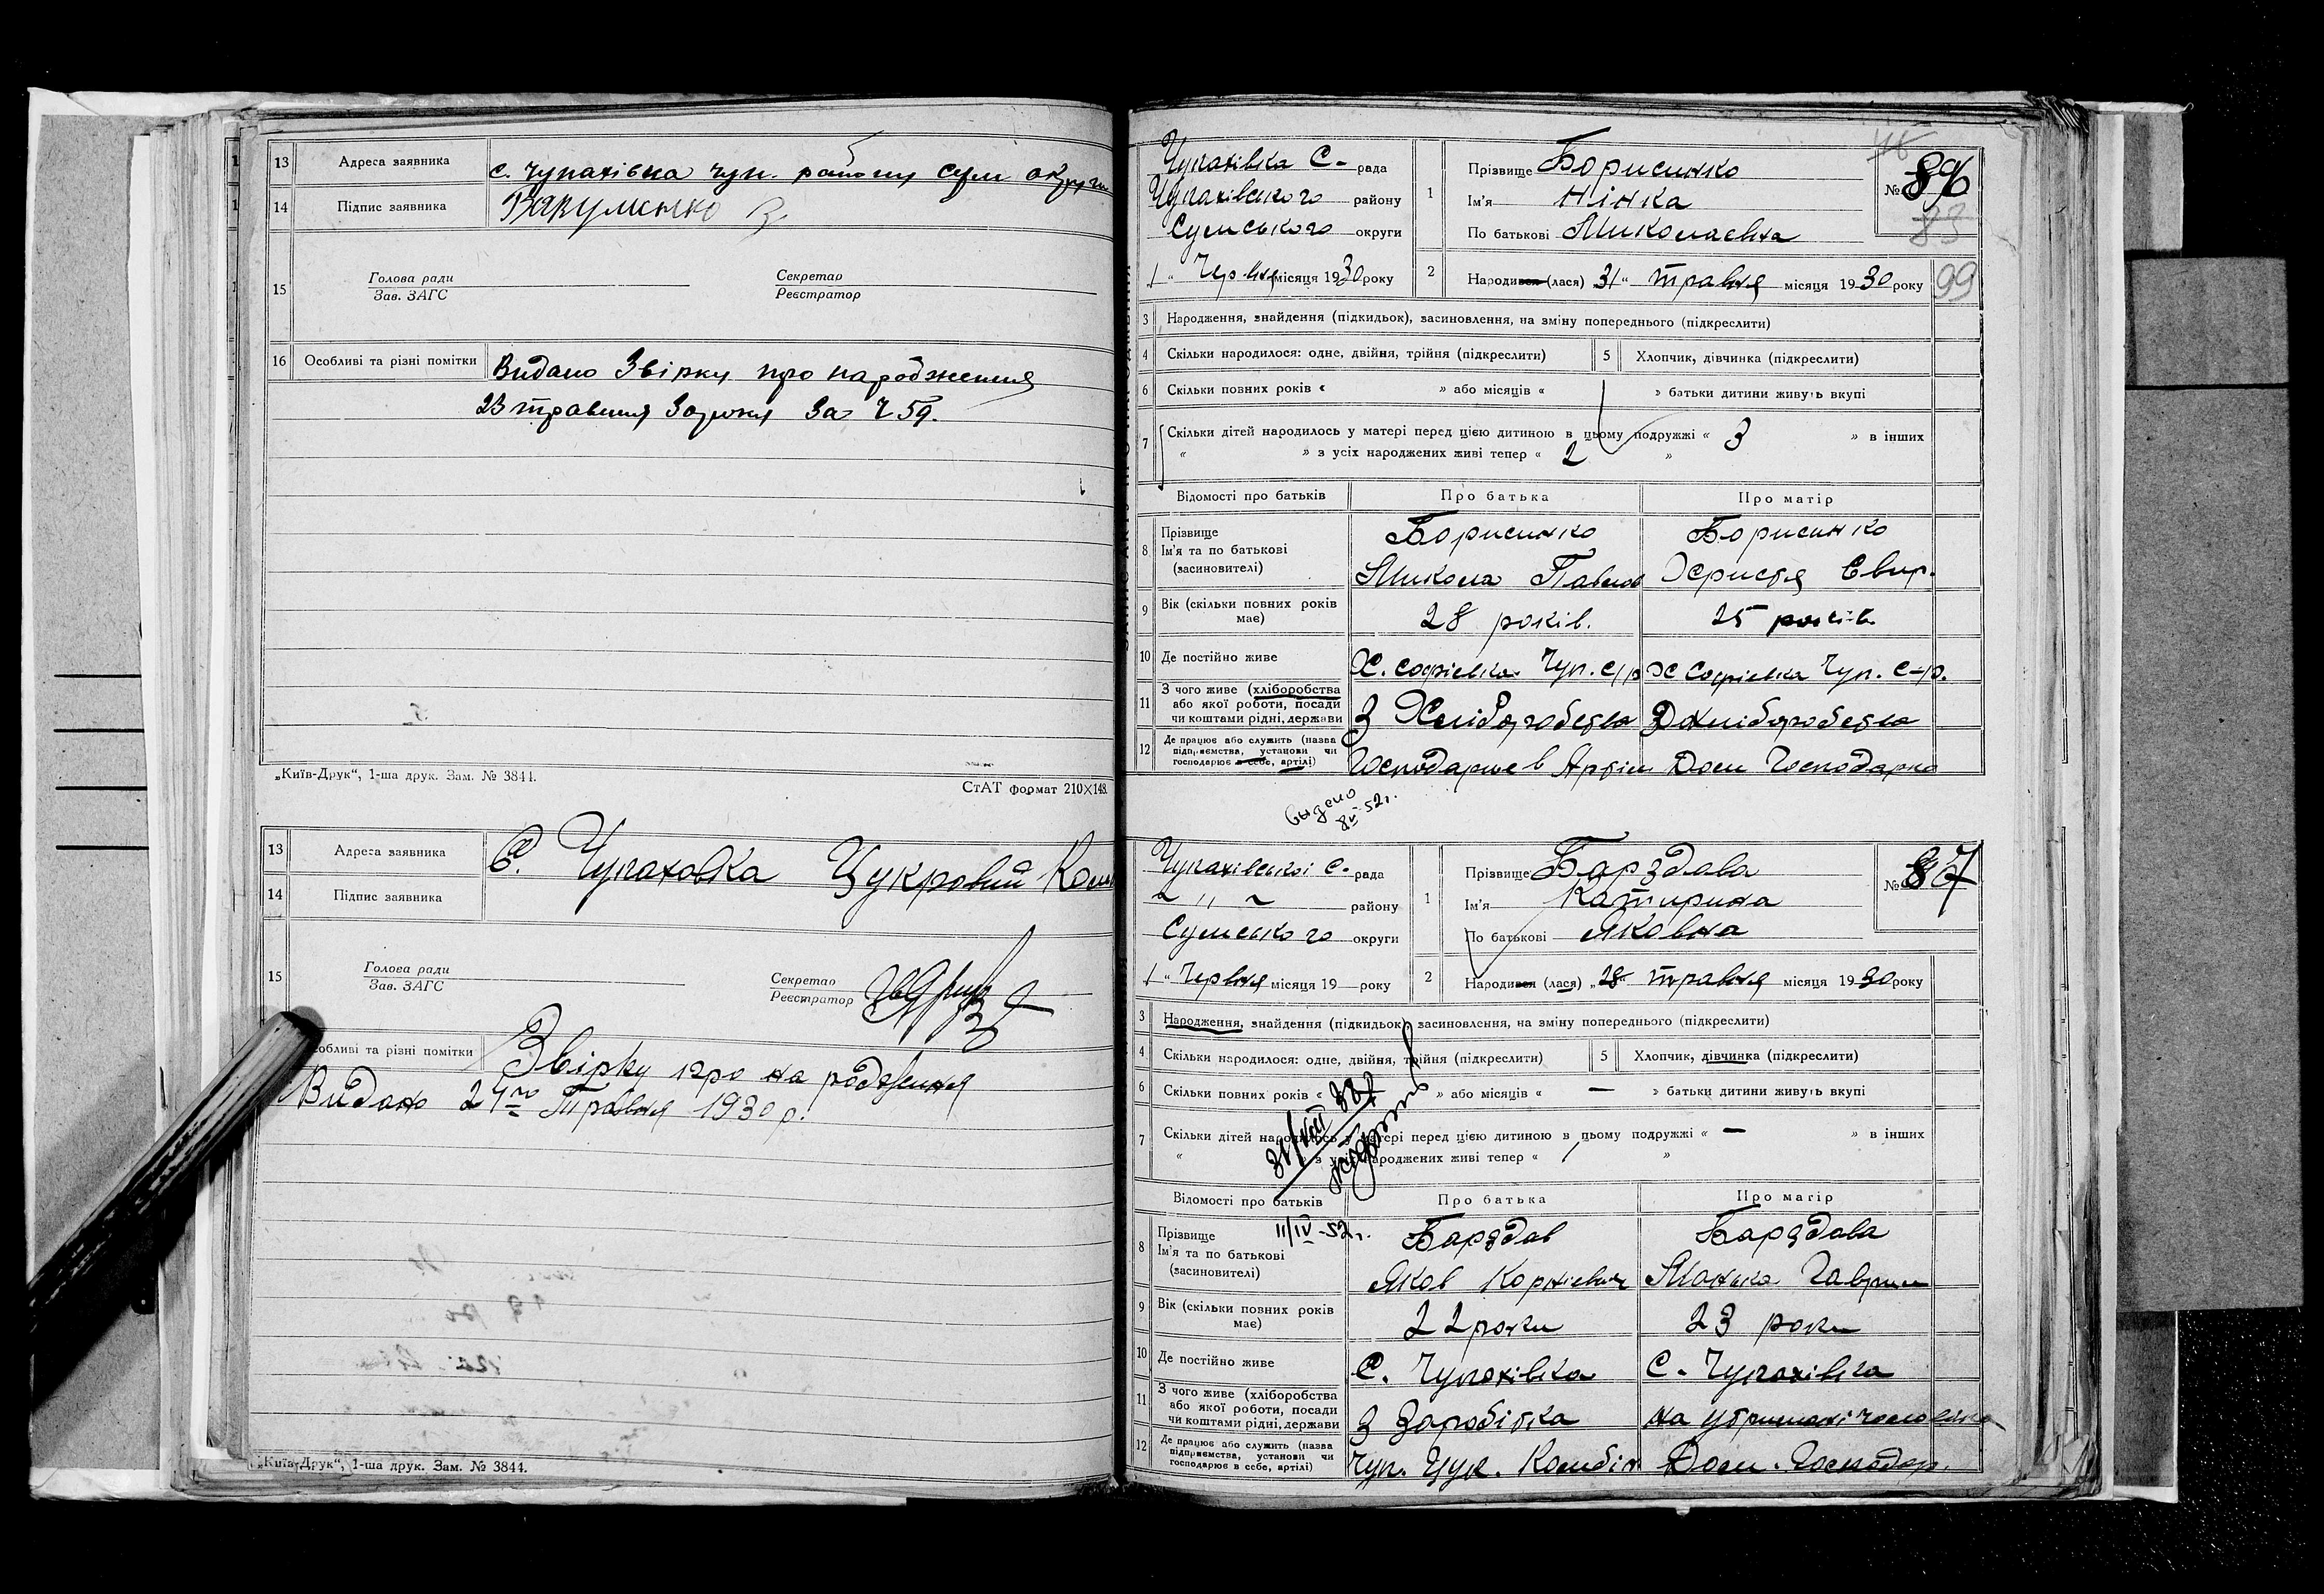 13 Адреса заявника с. Чупахівка чуп. району сум округи
14 Підпис заявника Вакуленко
15 Голова ради Секретар
Зав. ЗАГС Реєстратор
16 Особливі та різні помітки Видано Звірку про народження
23 травня 30 року За Ч 59.
„Київ-Друк“, 1-ша друк. Зам. № 3844.
СтАТ формат 210×148.
13 Адреса заявника С. Чупаховка Цукровий Ком
14 Підпис заявника
15 Голова ради Секретар
Зав. ЗАГС Реєстратор
собливі та різні помітки Звірку про на родження
Видано 24го Травня 1930 р.
„Київ-Друк“, 1-ша друк. Зам. № 3844.
Чупахівка С. рада
Чупахівського району
Сумського округи
1 „ Червня місяця 1930 року
1 Прізвище Борисинко
Ім'я Нінка
По батькові Миколаевна
№ 86
83
2 Народився (лася) 31 “ травня місяця 1930 року
99
3 Народження, знайдення (підкидьок), засиновлення, на зміну попереднього (підкреслити)
4 Скільки народилося: одне, двійня, трійня (підкреслити) 5 Хлопчик, дівчинка (підкреслити)
6 Скільки повних років « » або місяців « » батьки дитини живуть вкупі
7 Скільки дітей народилось у матері перед цією дитиною в цьому подружжі « 3 » в інших
« » з усіх народжених живі тепер « 2 »
Відомості про батьків Про батька Про матір
8 Прізвище Борисинко Борисинко
Ім'я та по батькові
(засиновителі) Микола Павлов Христя Свир.
9 Вік (скільки повних років має) 28 років. 25 років
10 Де постійно живе Х. Софієвка Чуп. С/р Х Софієвка Чуп. С-р.
11 З чого живе (хліборобства
або якої роботи, посади
чи коштами рідні, держави З Хліборобства З Хліборобства
12 Де працює або служить (назва
підприємства, установи чи
господарює в себе, артілі) Господарює в Артіли Дом Господарка
выдано
8 52г.
Чупахівської С. рада
„ району
Сумського округи
1 “ Червня місяця 19 року
1 Прізвище Барздова
Ім'я Катирина
По батькові Яковна
№ 87
2 Народився (лася) „28“ травня місяця 1930 року
3 Народження, знайдення (підкидьок), засиновлення, на зміну попереднього (підкреслити)
4 Скільки народилося: одне, двійня, трійня (підкреслити) 5 Хлопчик, дівчинка (підкреслити)
6 Скільки повних років « » або місяців « — » батьки дитини живуть вкупі
7 Скільки дітей народилось у матері перед цією дитиною в цьому подружжі « — » в інших
« » з усіх народжених живі тепер « »
Відомості про батьків Про батька Про матір
II/IV-52г.
8 Прізвище Барздов Барздова
Ім'я та по батькові
(засиновителі) Яков Корнієвич Монька Гаврил
9 Вік (скільки повних років має) 22 роки 23 роки
10 Де постійно живе С. Чупахівка С. Чупахівка
11 З чого живе (хліборобства
або якої роботи, посади
чи коштами рідні, держави З Заробітка на утримані чоловіка
12 Де працює або служить (назва
підприємства, установи чи
господарює в себе, артілі) Чуп. Цук. Комбін Дом. Господар.